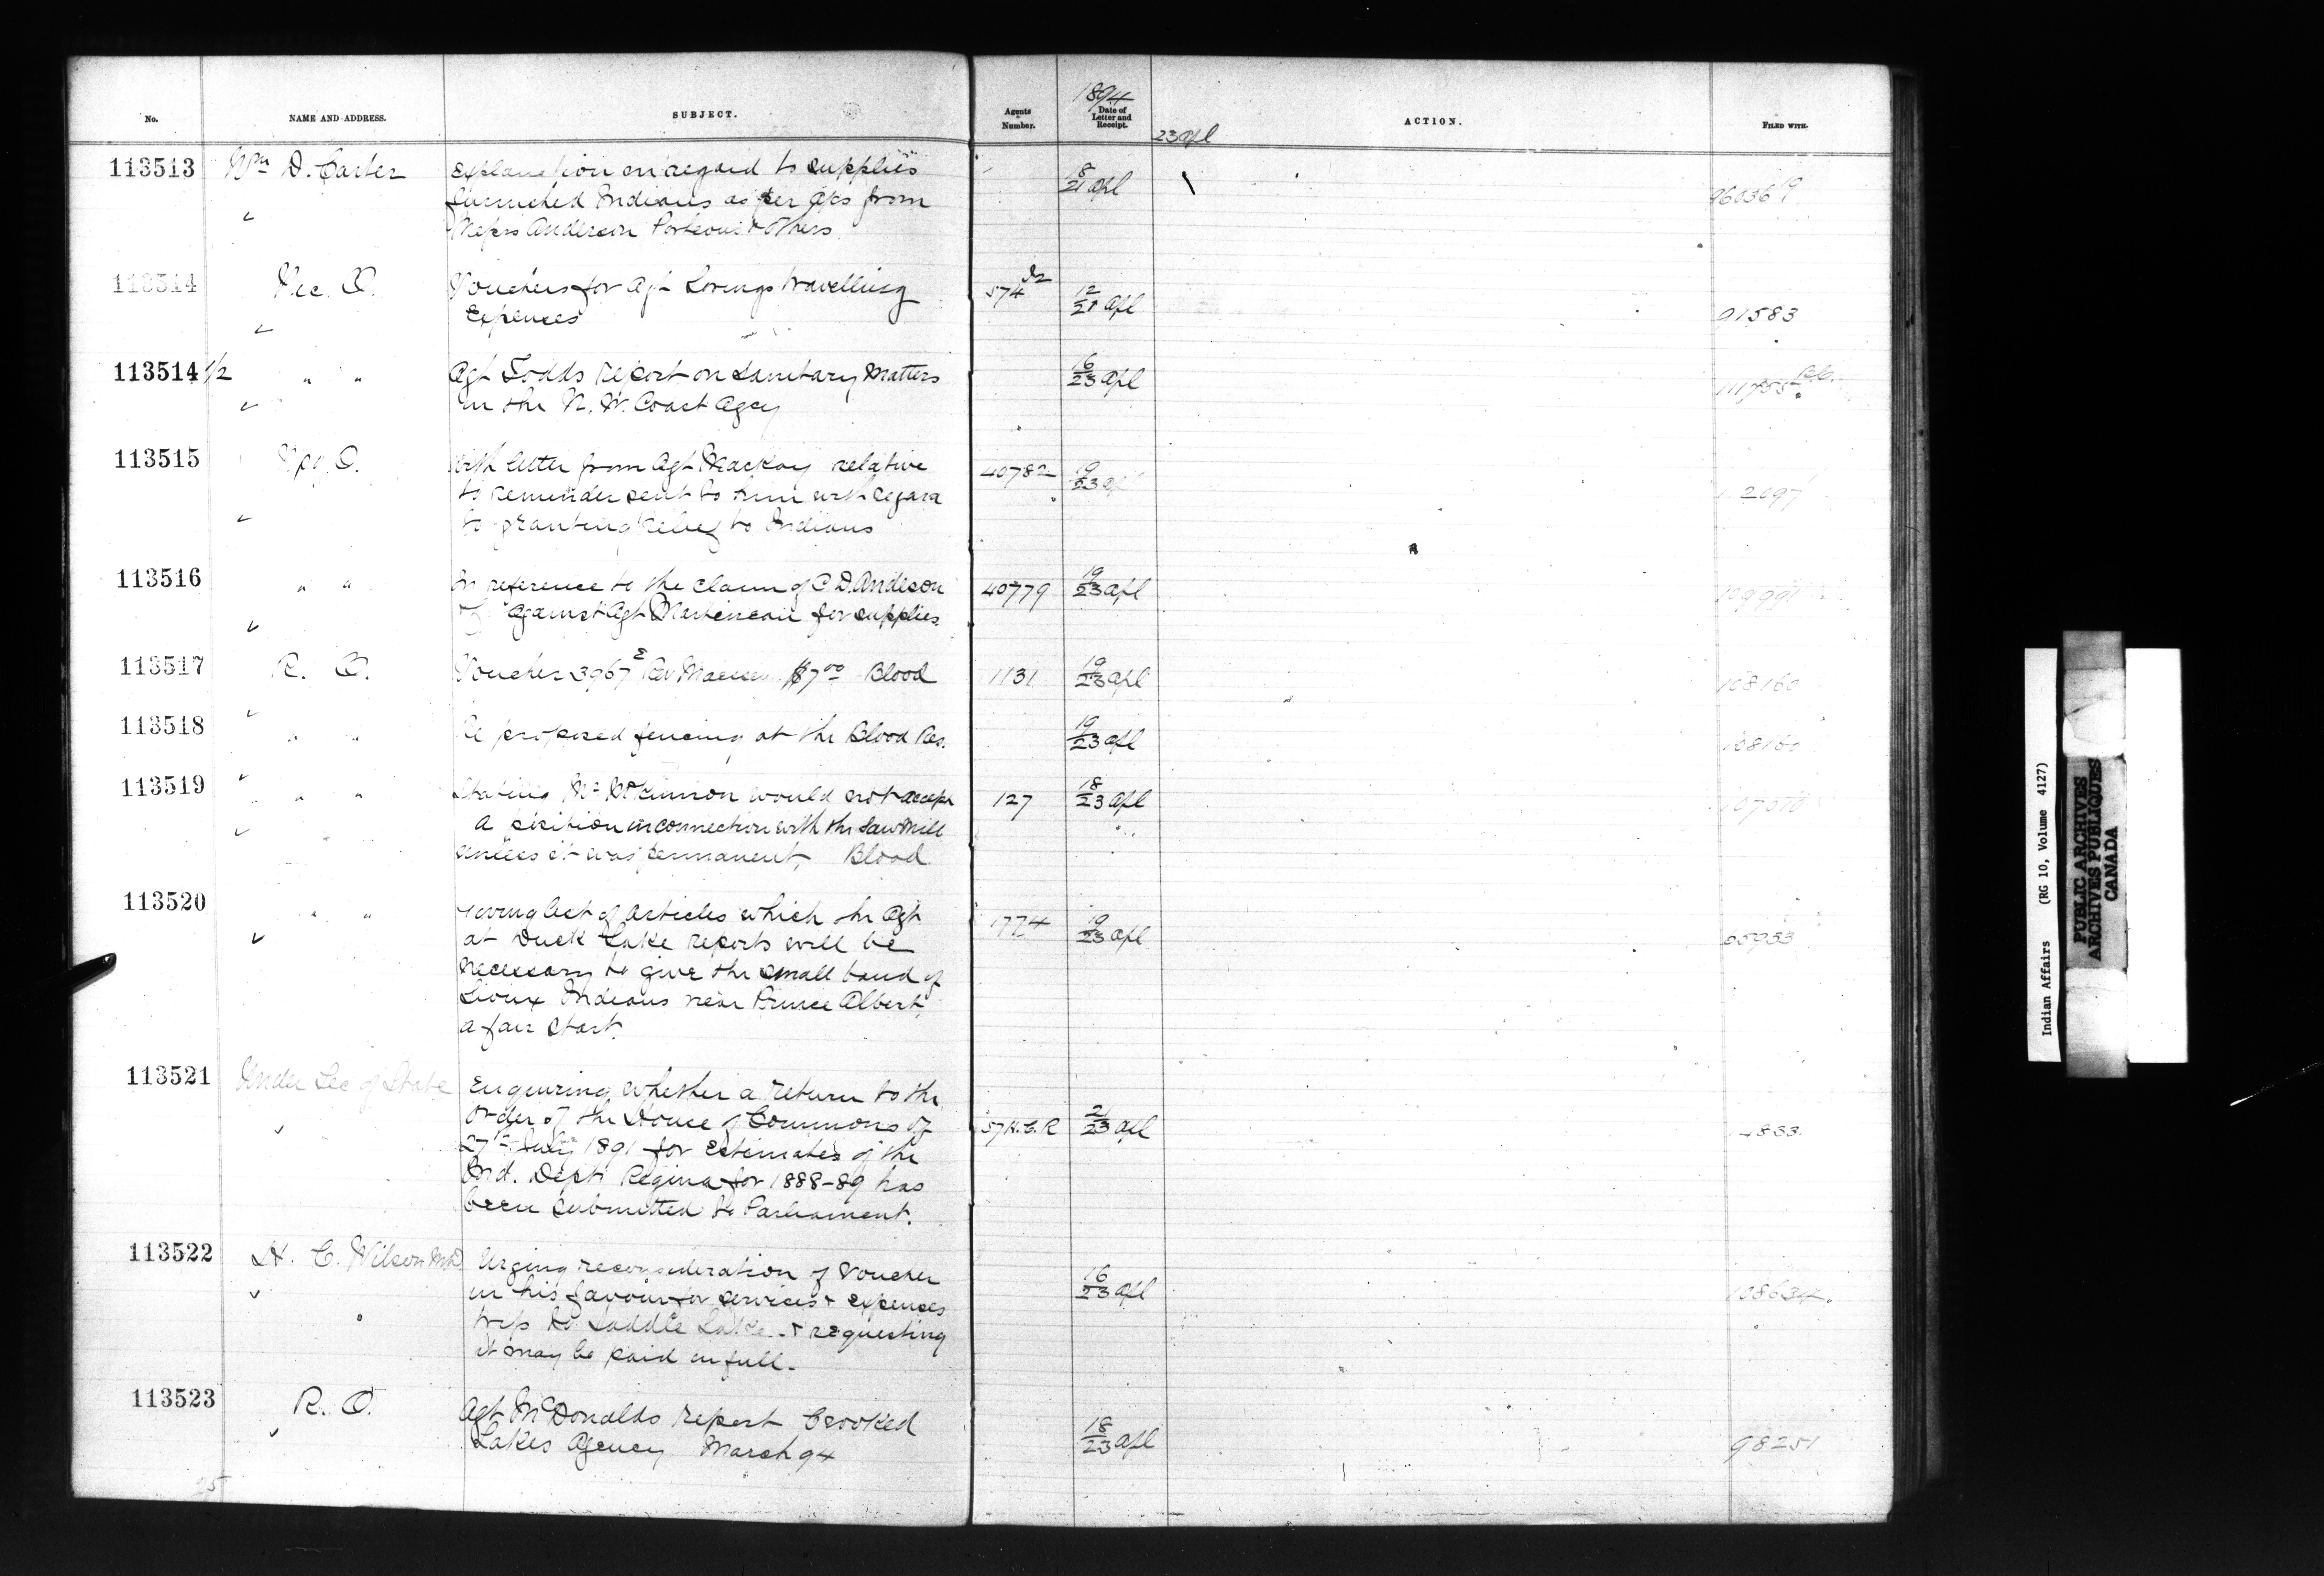 No. NAME AND ADDRESS. SUBJECT. Agents Number. 1894 Date of Letter and Receipt. ACTION. FILED WITH.
23 Apl
113513 Wm D. Carter Explanation in regard to supplies 8/21 Apl 96036 19
furnished Indians as per a/cs from
Messrs Anderson Porteous & Others
113514 Vic. O. Vouchers for Agt Lorings travelling 574 12/21 Apl 91583
Expenses
113514 1/2 " " Agt Todds report on Sanitary Matters 16/23 Apl
in the N. W. Coast Agcy
113515 O. With letter from Agt Mackay relative 40782 19/23 Apl
to reminder sent to him with regard
to granting relief to Indians
113516 " " In reference to the claim of C. D. Anderson 40779 19/23 Apl
against Agt Martineau for supplies
113517 R. O. Voucher 3967 E Rev $7.00 Blood 1131 19/23 Apl 108160
113518 " " Re proposed fencing at the Blood Res. 19/23 Apl 108160
113519 " " Stating Mr McKinnon would not accept 127 18/23 Apl
a position in connection with the Saw Mill
unless it was permanent, Blood
113520 " " Giving list of articles which the Agt 1774 19/23 Apl
at Duck Lake reports will be
necessary to give the small band of
Sioux Indians near Prince Albert,
a fair start.
113521 Under Sec of State Enquiring whether a return to the
Order of the House of Commons of 57 H.C.R 21/23 Apl
27th July 1891 for Estimates of the
Ind. Dept Regina for 1888-89 has
been submitted to Parliament.
113522 H. C. Wilson M.D. Urging reconsideration of Voucher 16/23 Apl 108634.
in his favour for services & expenses
trip to Saddle Lake & requesting
it may be paid in full.
113523 R. O. Agt McDonalds report Crooked 18/23 Apl 98251
Lakes Agency March 94
25
Indian Affairs (RG 10, Volume 4127)
PUBLIC ARCHIVES
ARCHIVES PUBLIQUES
CANADA